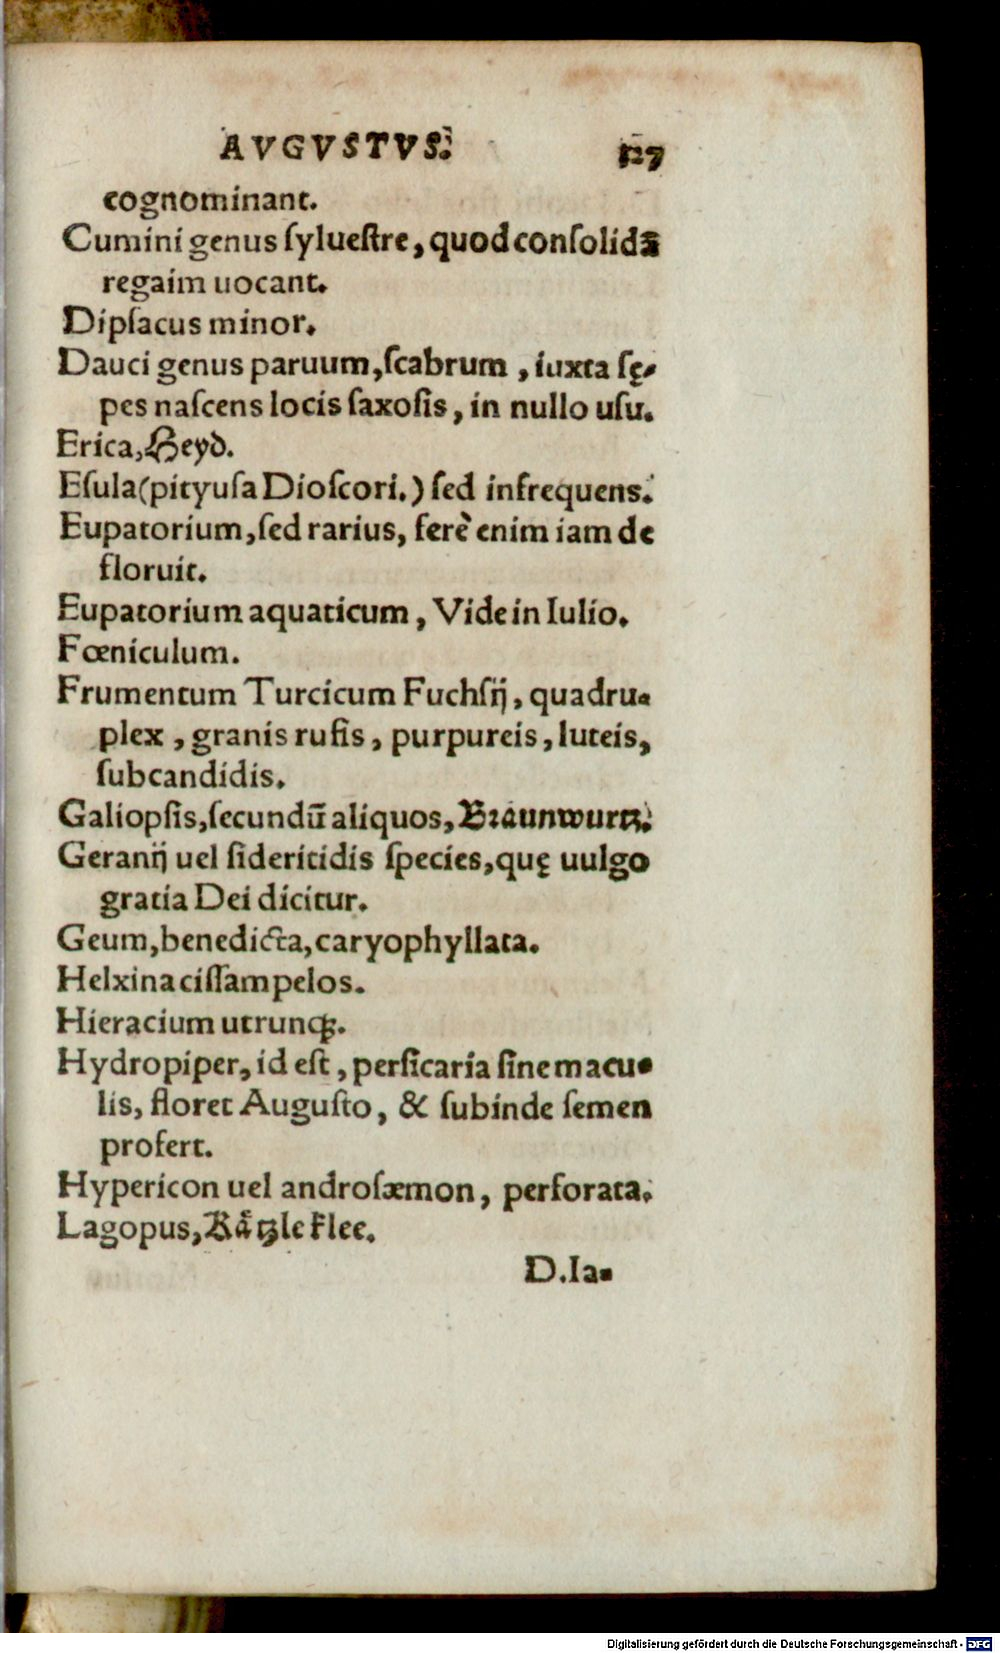 AVGVSTVS. 127
cognominant.
Cumini genus ſylueſtre, quod conſolidã
regaim uocant.
Dipſacus minor.
Dauci genus paruum, ſcabrum, iuxta ſę-
pes naſcens locis ſaxoſis, in nullo uſu.
Erica, Heyd.
Eſula (pityuſa Dioſcori.) ſed infrequens.
Eupatorium, ſed rarius, ferè enim iam de
floruit.
Eupatorium aquaticum, Vide in Iulio.
Fœniculum.
Frumentum Turcicum Fuchſij, quadru-
plex, granis rufis, purpureis, luteis,
ſubcandidis.
Galiopſis, ſecundũ aliquos, Braunwurtz.
Geranij uel ſideritidis ſpecies, quę uulgo
gratia Dei dicitur.
Geum, benedicta, caryophyllata.
Helxina ciſſampelos.
Hieracium utrunq́;.
Hydropiper, id eſt, perſicaria ſine macu-
lis, floret Auguſto, & ſubinde ſemen
profert.
Hypericon uel androſæmon, perforata.
Lagopus, Kåtzle klee.
D. Ia-
Digitalisierung gefördert durch die Deutsche Forschungsgemeinschaft - DFG